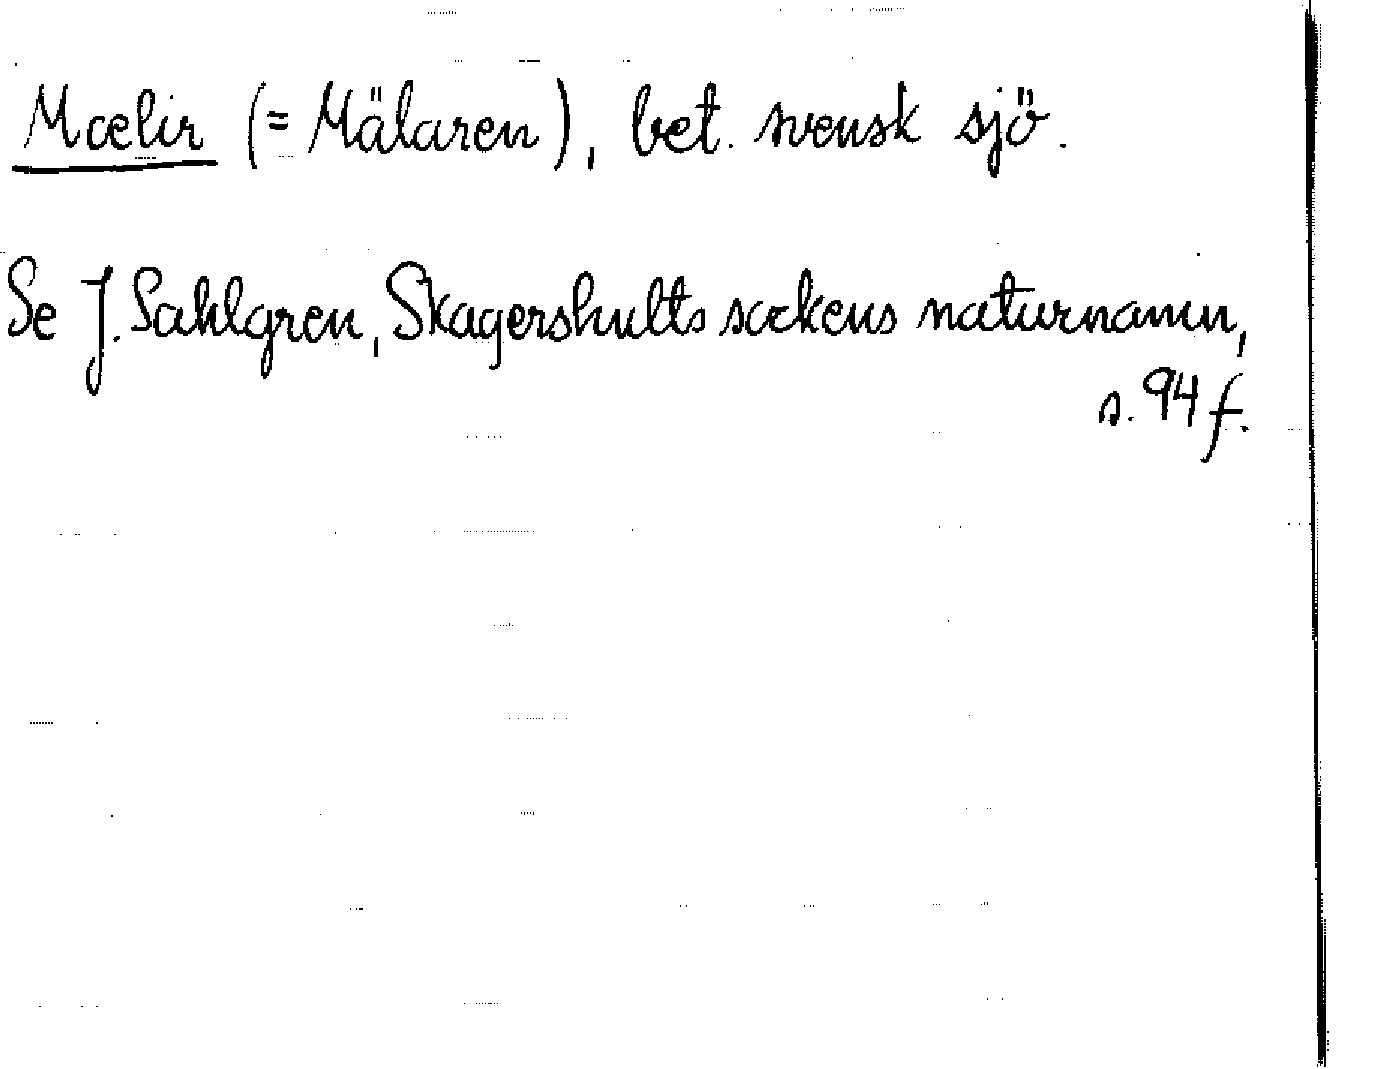 Mœlir (= Mälaren), bet. svensk sjö.
Se J. Sahlgren, Skagershults sockens naturnamn,
s. 94 f.